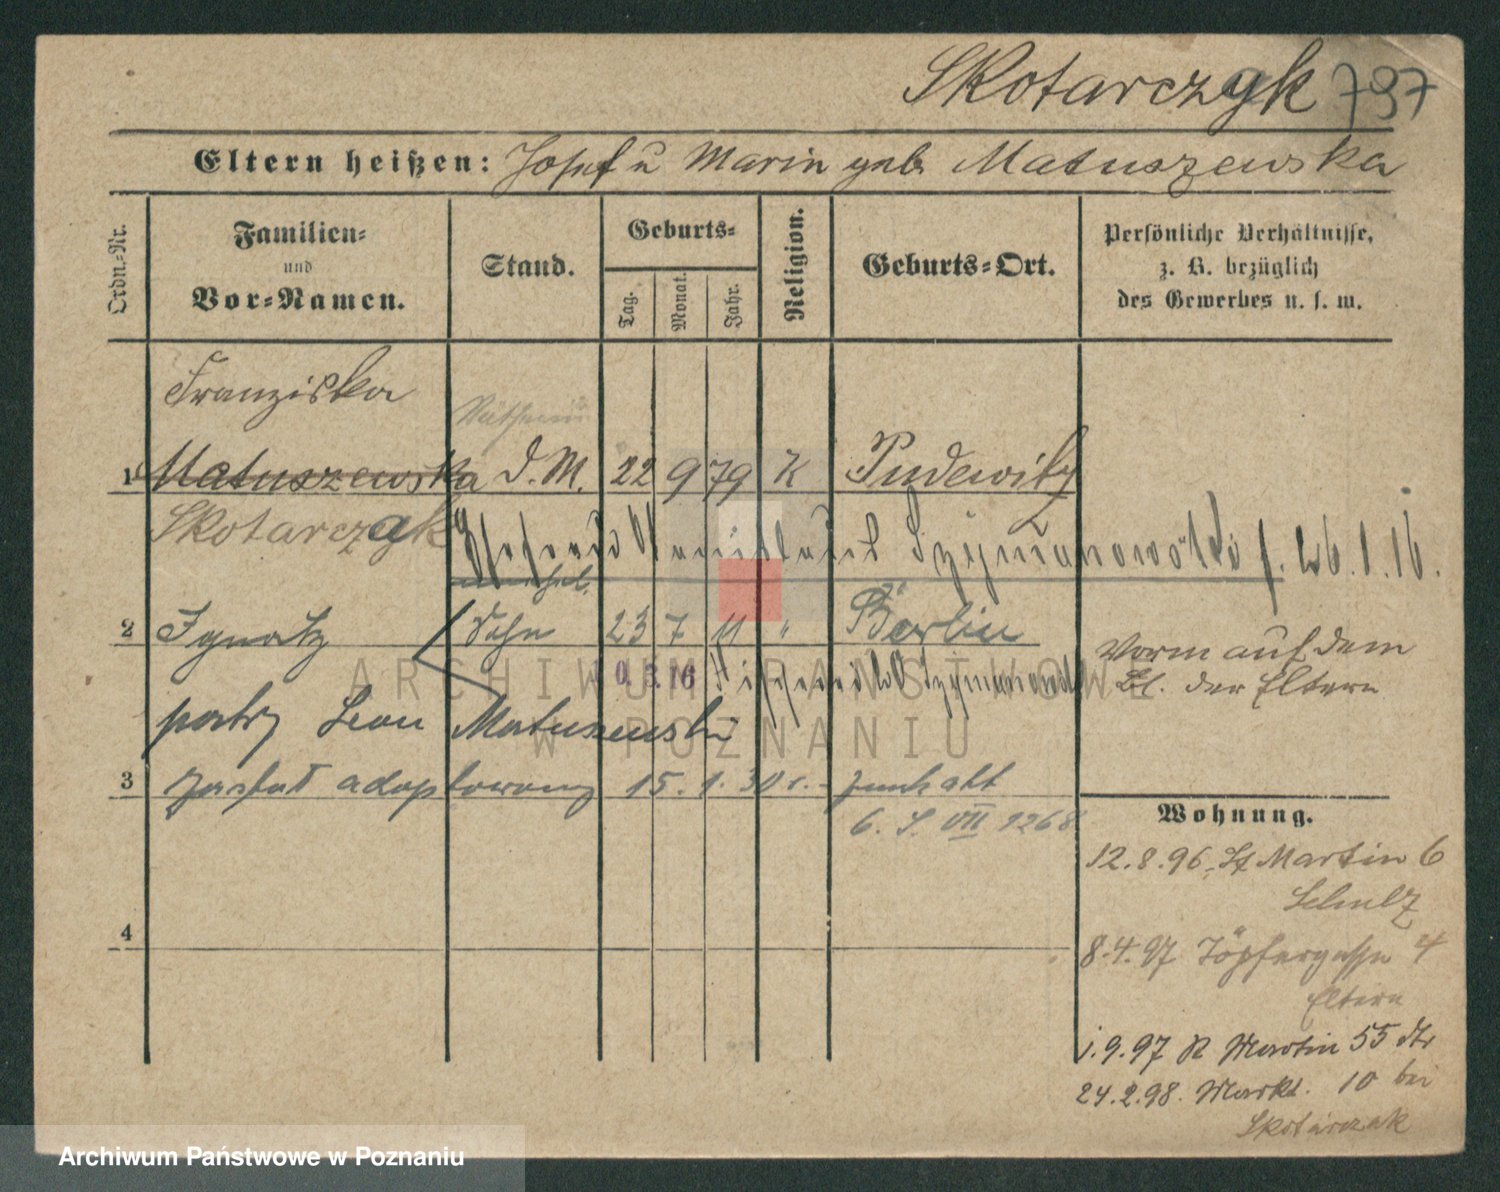 Skotarczyk 797
Eltern heißen: Josef u Marin geb Matuszewska
Ordn.-Nr.
Familien-
und
Vor-Namen.
Stand.
Geburts-
Tag.
Monat.
Jahr.
Religion.
Geburts-Ort.
Persönliche Verhältnisse,
z. B. bezüglich
des Gewerbes u. s. w.
Franziska
1 Matuszewska D. M. 22 9 79 K Pudewitz
Skotarczak
Szymanowski f. 26.1.16.
unehel.
2 Ignatz Sohn 23 7 11 " Berlin
Vorm auf dem
Bl. der Eltern
patrz Leon Matuszewski
3 został adoptowany 15. 1. 30 r. -
6. S. VII 1268
Wohnung.
12.8.96. St Martin 6
Schulz
4
8.4.97 Töpfergasse 4
Eltern
1.9.97 R Martin 55
24.2.98. Markt. 10 bei
Skotarczak
ARCHIWUM PAŃSTWOWE
W POZNANIU
Archiwum Państwowe w Poznaniu